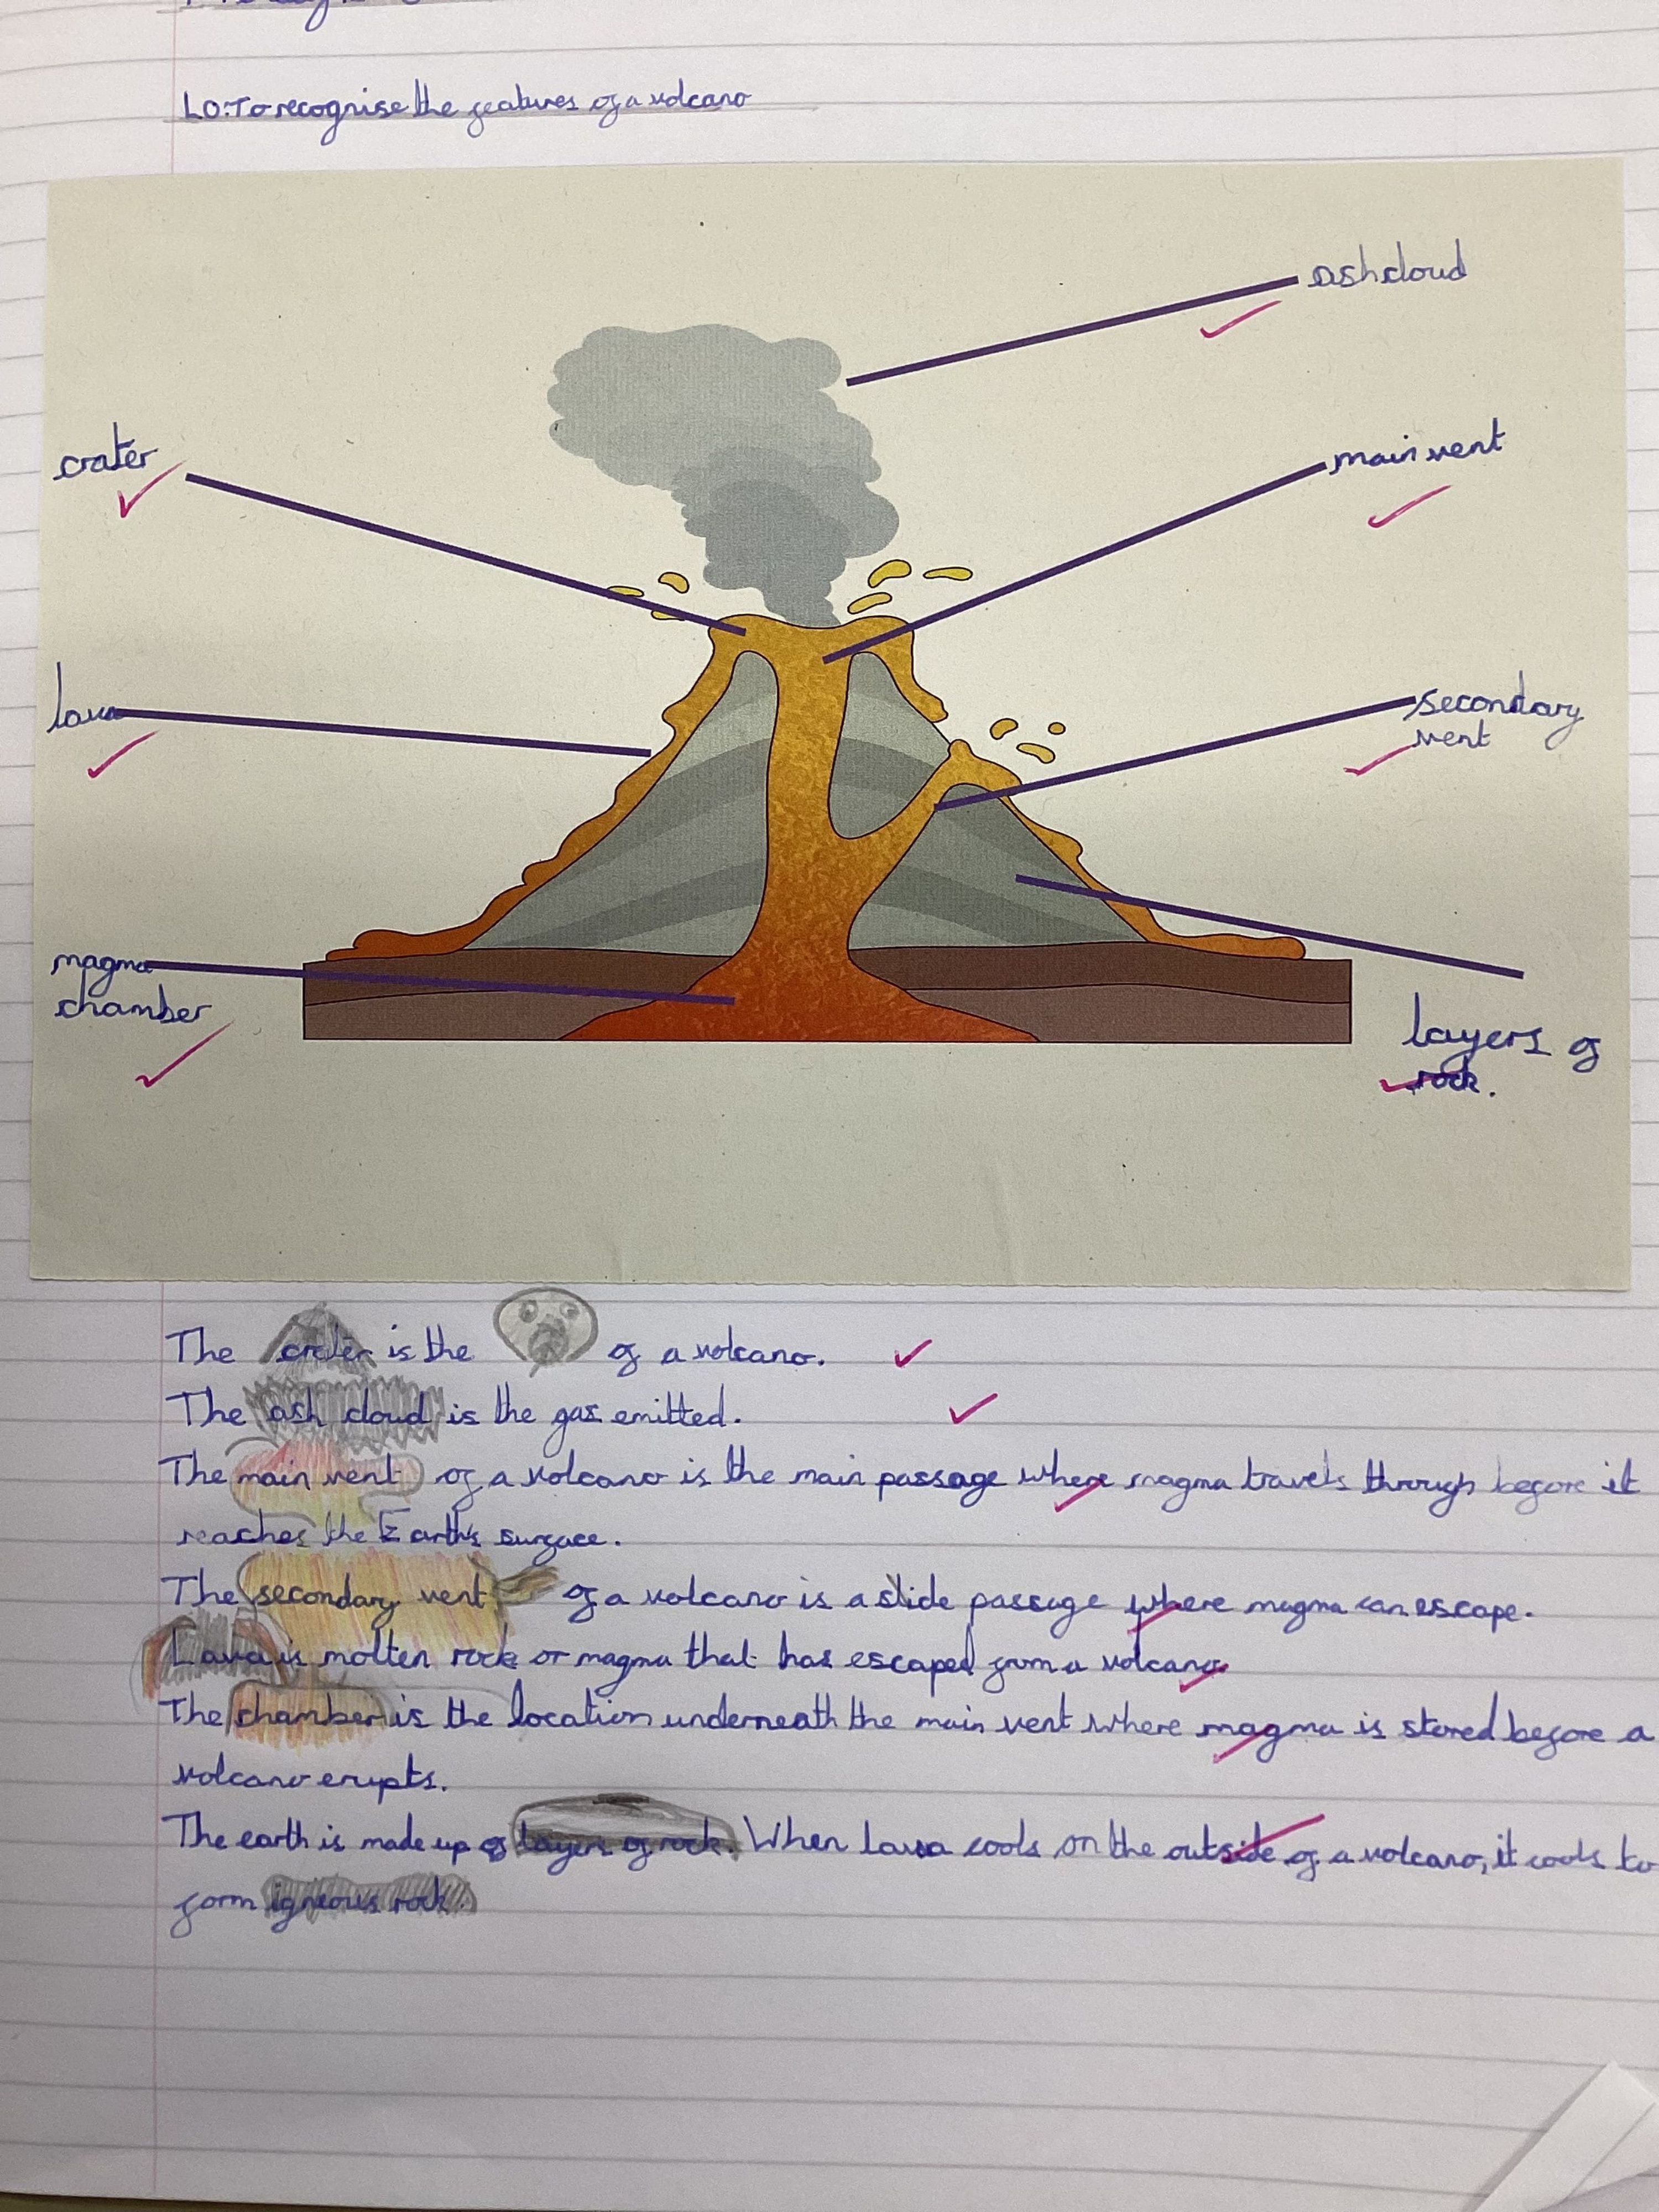 LO: To recognise the features of a volcano
ash cloud
crater
main vent
lava
secondary
vent
magma
chamber
layers of
rock.
The crater is the of a volcano.
The ash cloud is the gas emitted.
The main vent of a volcano is the main passage where magma travels through before it
reaches the Earth's surface.
The secondary vent of a volcano is a slide passage where magma can escape.
Lava is molten rock or magma that has escaped from a volcano.
The chamber is the location underneath the main vent where magma is stored before a
volcano erupts.
The earth is made up of layers of rock. When lava cools on the outside of a volcano, it cools to
form igneous rock.